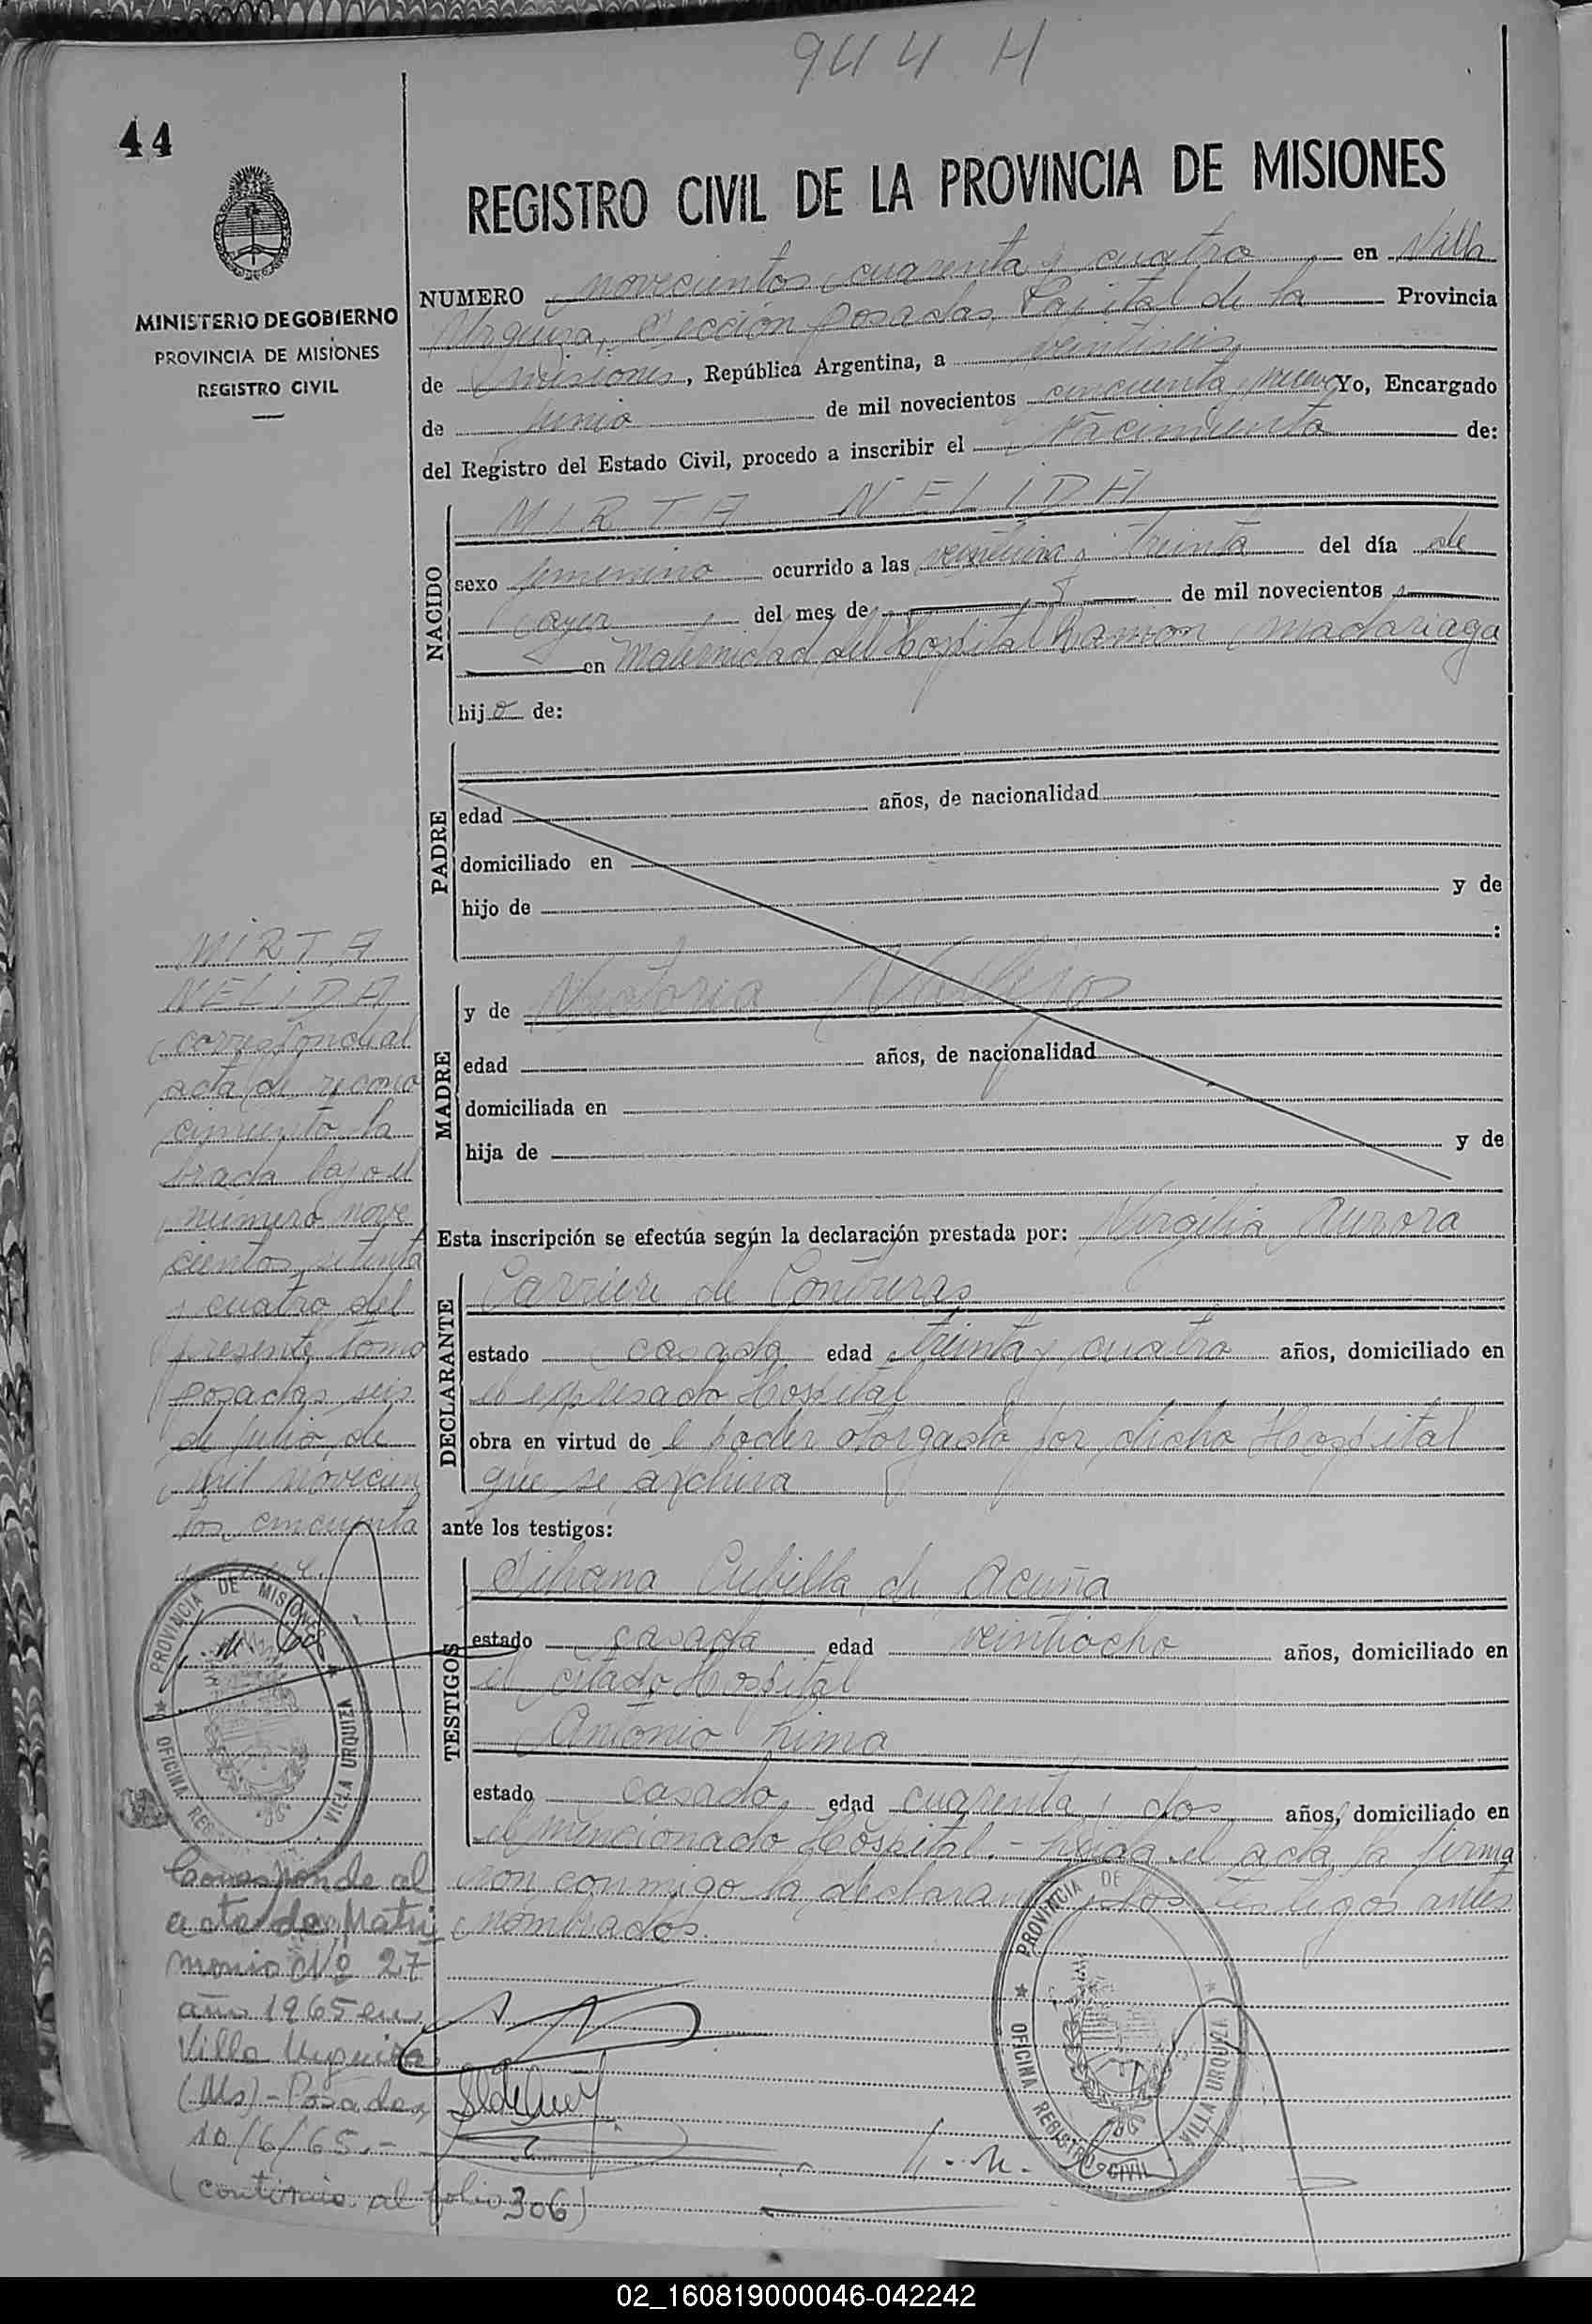 944 H
44
REGISTRO CIVIL DE LA PROVINCIA DE MISIONES
MINISTERIO DE GOBIERNO
PROVINCIA DE MISIONES
REGISTRO CIVIL
NUMERO novecientos cuarenta y cuatro en Villa
Urquiza, Sección Posadas, Capital de la Provincia
de Misiones, República Argentina, a veintiseis
de Junio de mil novecientos cincuenta y nueve Yo, Encargado
del Registro del Estado Civil, procedo a inscribir el Nacimiento de:
NACIDO
MIRTA NELIDA
sexo femenino ocurrido a las veintiuna y treinta del día de
ayer del mes de de mil novecientos
en Maternidad del Hospital Ramon Madariaga
hija de:
PADRE
edad años, de nacionalidad
domiciliado en
hijo de y de
:
MADRE
y de Victoria Vallejos
edad años, de nacionalidad
domiciliada en
hija de y de
Esta inscripción se efectúa según la declaración prestada por: Virgilia Aurora
DECLARANTE
Carriere de Contreras
estado casada edad treinta y cuatro años, domiciliado en
el expresado Hospital
obra en virtud de el poder otorgado por dicho Hospital
que se archiva
ante los testigos:
TESTIGOS
Silvana Cubilla de Acuña
estado casada edad veintiocho años, domiciliado en
el citado Hospital
Antonio Lima
estado casado edad cuarenta y dos años, domiciliado en
el mencionado Hospital.- Leida el acta, la firma
ron conmigo la declarante y los testigos antes
nombrados.
MIRTA
NELIDA
corresponde al
acta de recono
cimiento la
brada bajo el
número nove
cientos setenta
y cuatro del
presente tomo
Posadas, seis
de julio de
mil novecien
tos cincuenta
PROVINCIA DE MISIONES
OFICINA REGISTRO CIVIL
VILLA URQUIZA
Corresponde al
acta de Matri
monio Nº 27
año 1965 en
Villa Urquiza
(Ms) - Posadas,
10/6/65.-
(continúa al folio 306)
PROVINCIA DE
OFICINA REGISTRO CIVIL
VILLA URQUIZA
02_160819000046-042242